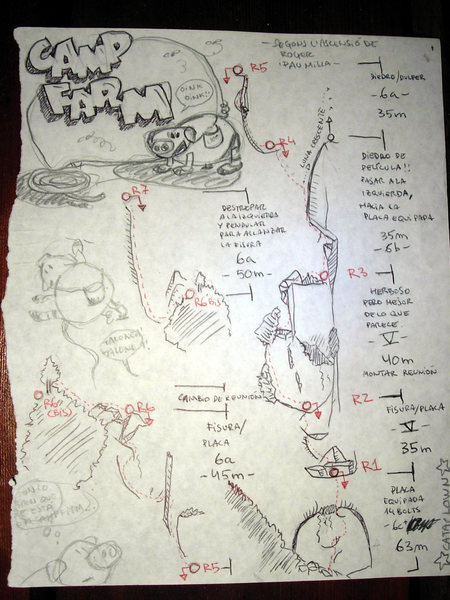 CAMP
FARM
- SEGONS L'ASCENSIÓ DE
ROGER
I PAU MILLA -
OINK
OINK!!
R5
DIEDRO/DULFER
- 6a -
35m
R4
LUNA CRECIENTE
DIEDRO DE
PELÍCULA!!
PASAR A LA
IZQUIERDA,
HACIA LA
PLACA EQUIPADA
35m
- 6b -
R7
DESTREPAR
A LA IZQUIERDA
Y PENDULAR
PARA ALCANZAR
LA FISURA
6a
- 50m -
R6 BIS
R3
HERBOSO
PERO MEJOR
DE LO QUE
PARECE.
- V -
40m
MONTAR REUNIÓN
R6
(BIS)
R6
CAMBIO DE REUNIÓN
FISURA/
PLACA
6a
- 45m -
R2
FISURA/PLACA
- V -
35m
R1
PLACA
EQUIPADA
14 BOLTS
- 6c
63m
R5
CATACLOWN